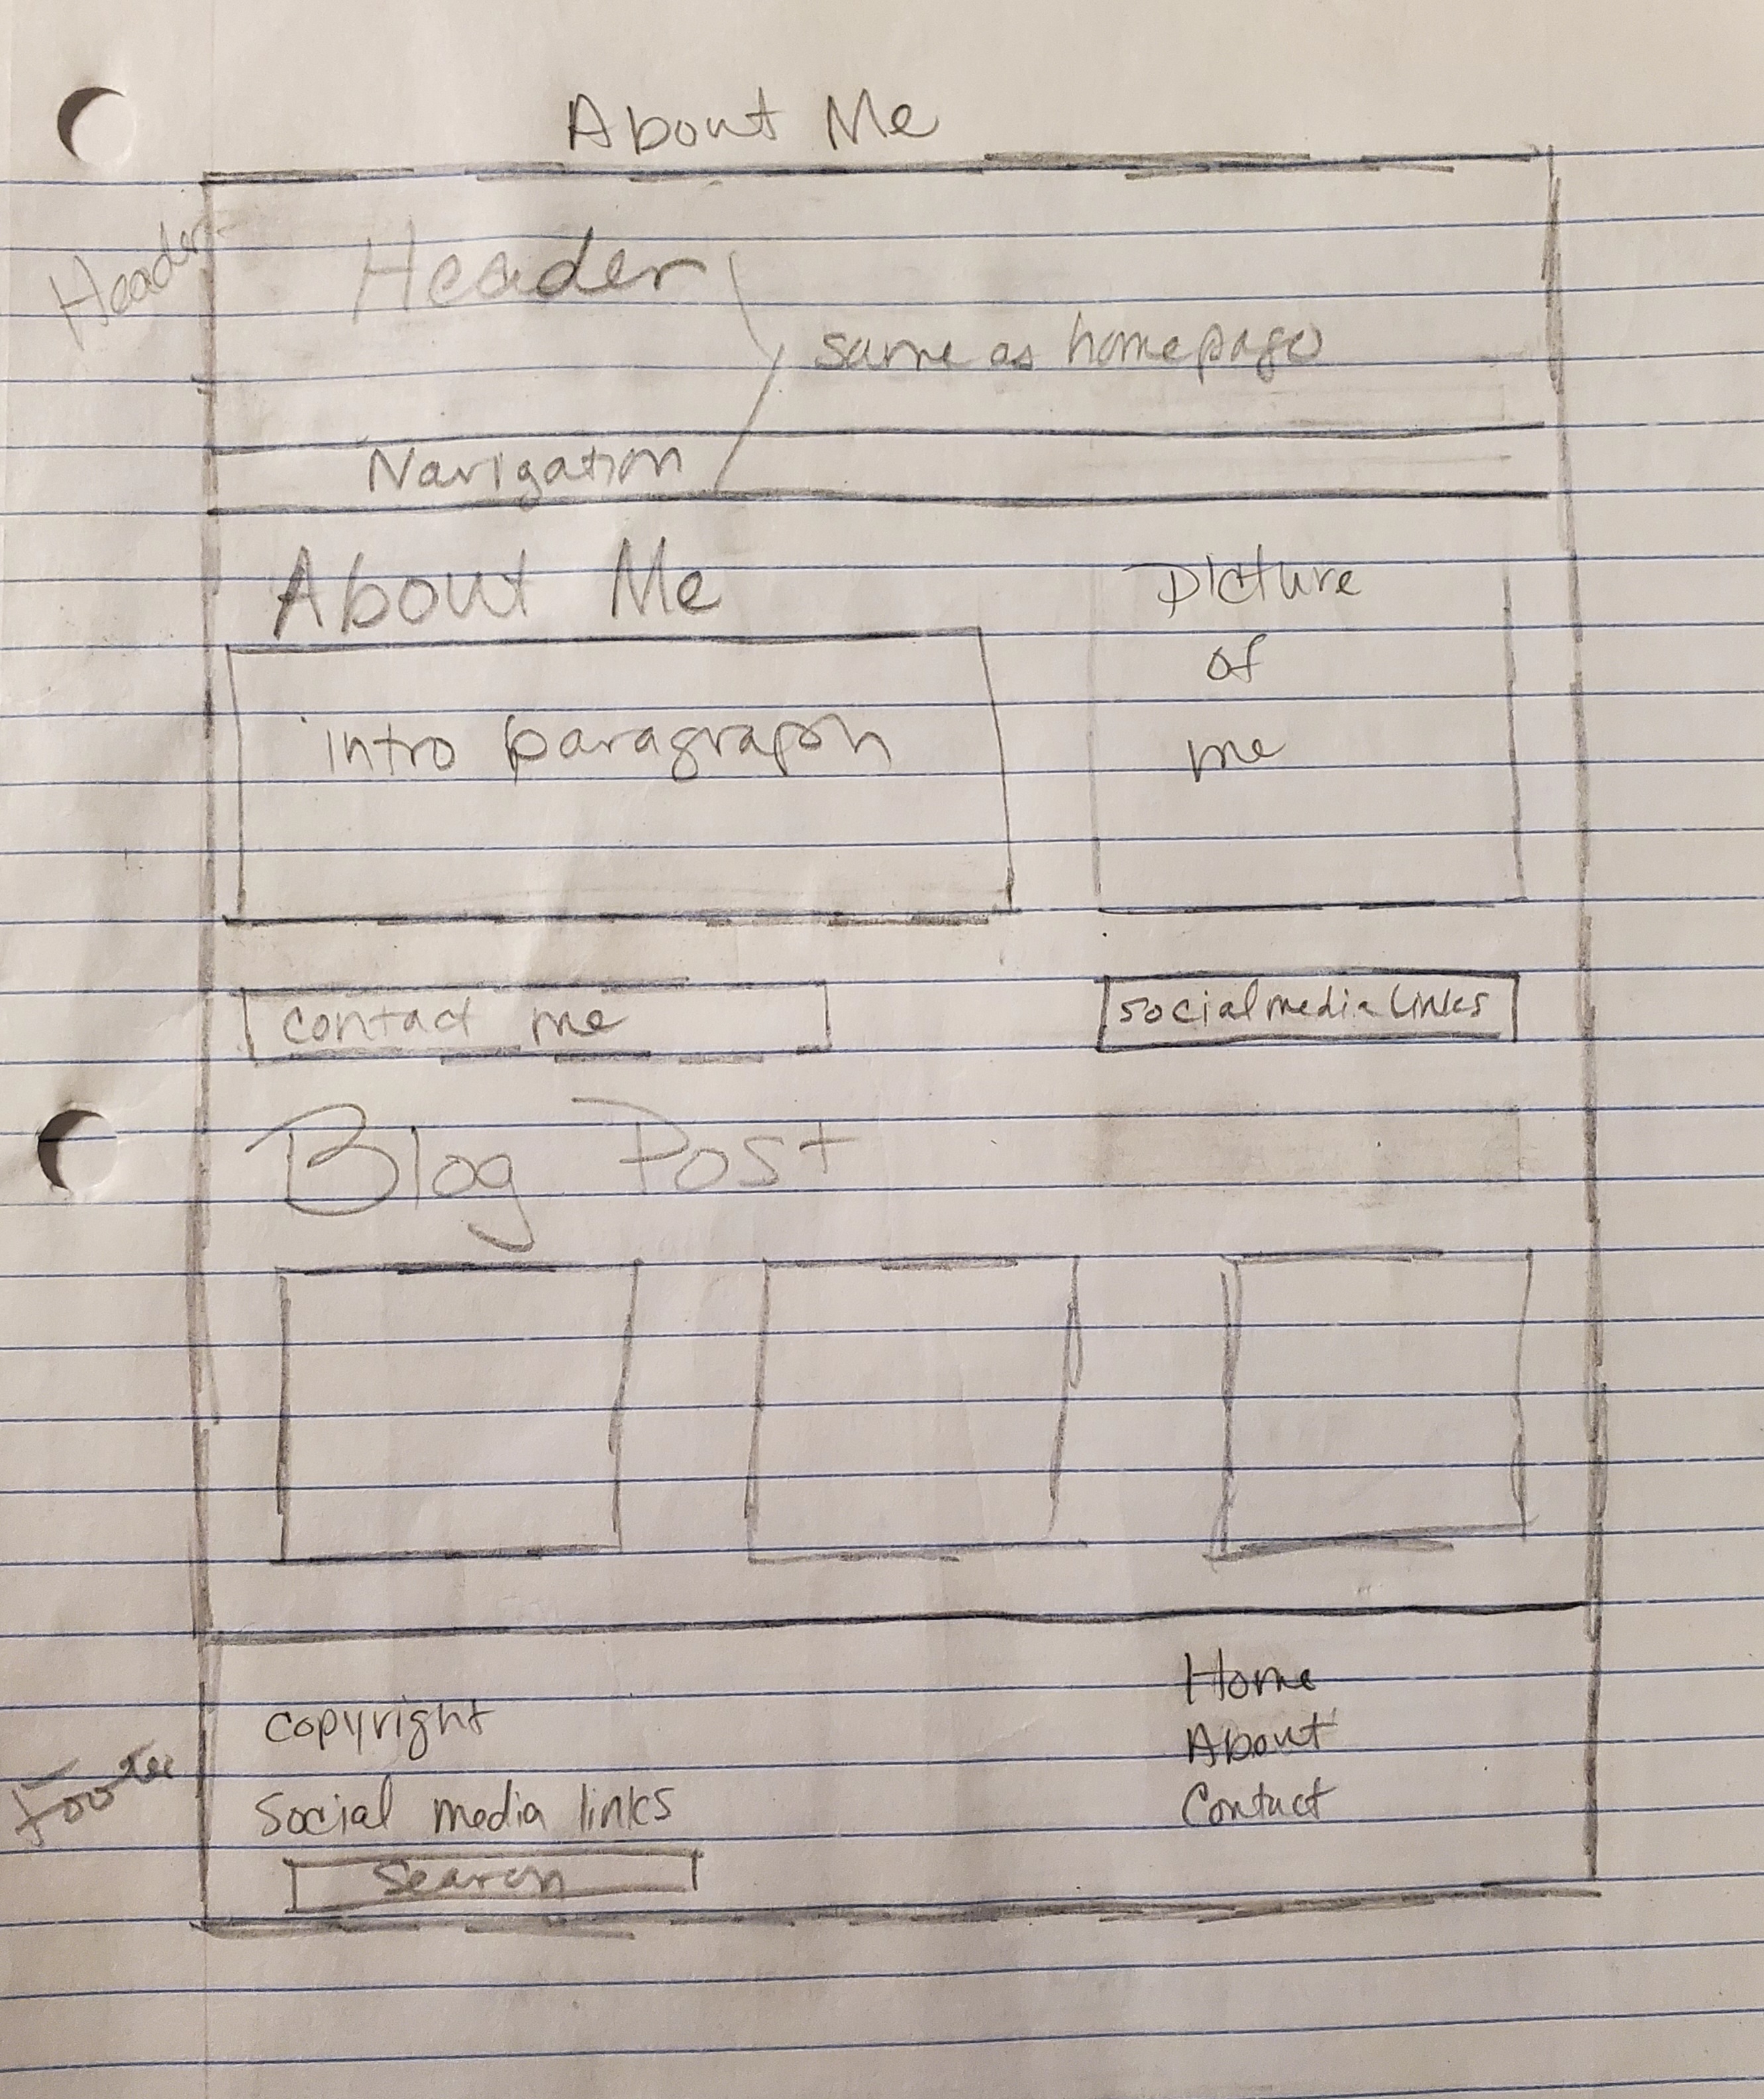 About Me
Header
Header
same as homepage
Navigation
About Me
Picture
of
me
intro paragraph
contact me
social media links
Blog Post
Home
copyright
About
Footer
Social media links
Contact
Search